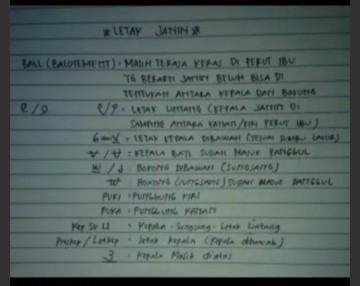 * LETAK JANIN *
BALL (BALOTEMENT) = MASIH TERAJA KERAS DI PERUT IBU
YG BERARTI JANIN BELUM BISA DI
TENTUKAN ANTARA KEPALA DAN BOKONG
= LETAK LINTANG (KEPALA JANIN DI
SAMPING ANTARA KANAN/KIRI PERUT IBU)
= LETAK KEPALA DIBAWAH
= KEPALA BAYI SUDAH MASUK PANGGUL
= BOKONG DIBAWAH (SUNGSANG)
= BOKONG (SUNGSANG) SUDAH MASUK PANGGUL
PUKI = PUNGGUNG KIRI
PUKA = PUNGGUNG KANAN
Kep Su Li = Kepala - Sungsang - Letak Lintang
/ Letkep = letak kepala (kepala dibawah)
= Kepala Masih diatas